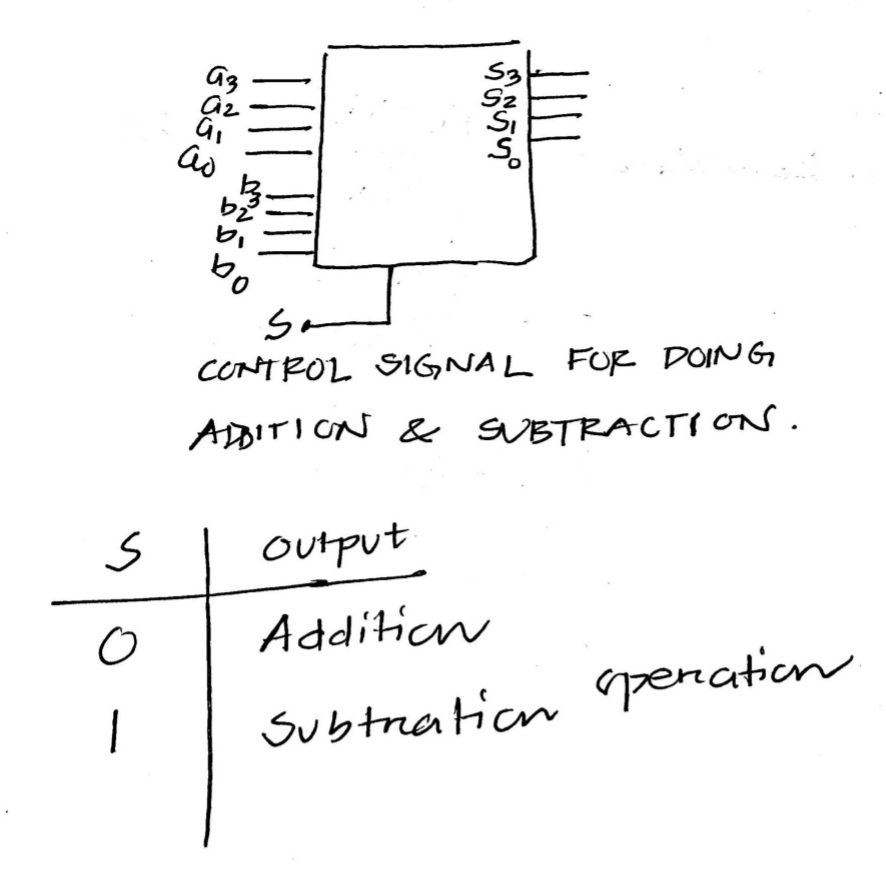 a3 S3
a2 S2
a1 S1
a0 S0
b3
b2
b1
b0
S
CONTROL SIGNAL FOR DOING
ADDITION & SUBTRACTION.
S output
0 Addition
1 Subtration operation